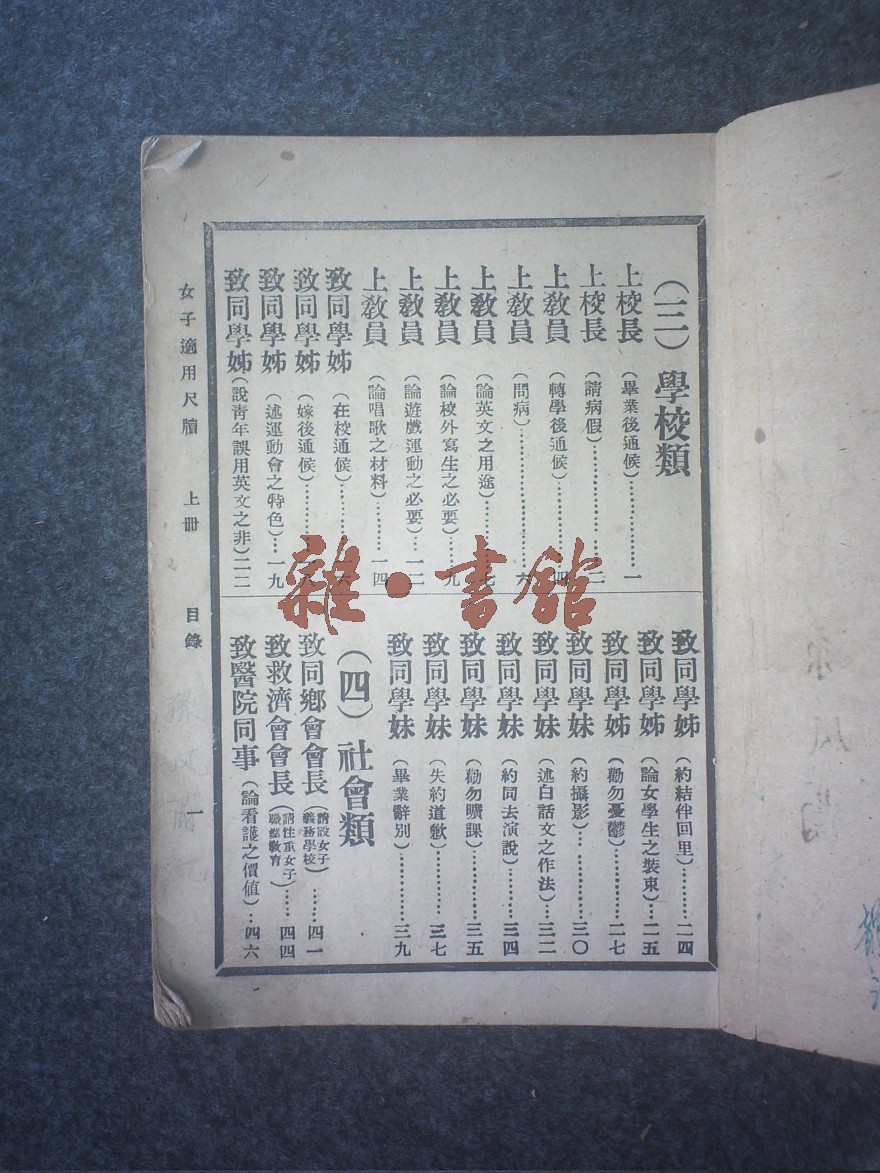 (三) 學校類
上校長 (畢業後通候)……………一
上校長 (請病假)……………二
上教員 (轉學後通候)……………四
上教員 (問病)……………六
上教員 (論英文之用途)……………七
上教員 (論校外寫生之必要)……九
上教員 (論遊戲運動之必要)…一二
上教員 (論唱歌之材料)………一四
致同學姊 (在校通候)…………六
致同學姊 (嫁後通候)…………八
致同學姊 (述運動會之特色)…一九
致同學姊 (說靑年誤用英文之非)二二
致同學姊 (約結伴回里)………二四
致同學姊 (論女學生之裝束)…二五
致同學姊 (勸勿憂鬱)………二七
致同學妹 (約攝影)…………三〇
致同學妹 (述白話文之作法)…三二
致同學妹 (約同去演說)………三四
致同學妹 (勸勿曠課)………三五
致同學妹 (失約道歉)………三七
致同學妹 (畢業辭別)………三九
(四) 社會類
致同鄉會會長 (請設女子義務學校)……四一
致救濟會會長 (請注重女子職業敎育)……四四
致醫院同事 (論看護之價値)…四六
女子適用尺牘 上冊 目錄 一
雜·書館